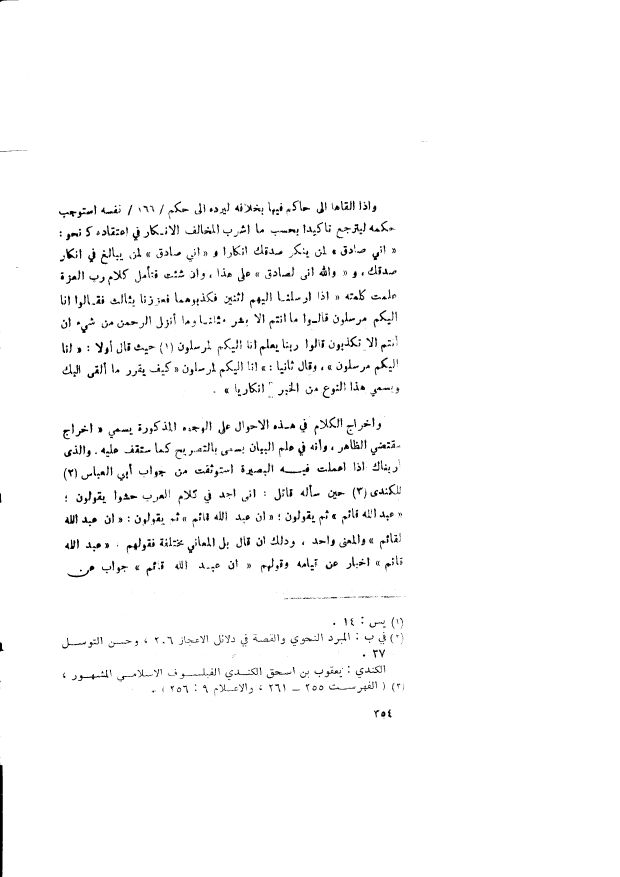 واذا القاها الى حاكم فيها بخلافه ليرده الى حكم / ١٦٦ / نفسه استوجب
حكمه ليترجع تاكيدا بحسب ما اشرب المخالف الانكار في اعتقاده كنحو :
« اني صادق » لمن ينكر صدقك انكارا و « اني صادق » لمن يبالغ في انكار
صدقك ، و « والله اني لصادق » على هذا ، وان شئت فتأمل كلام رب العزة
علمت كلمته « اذا ارسلنا اليهم اثنين فكذبوهما فعززنا بثالث فقالوا انا
اليكم مرسلون قالوا ما انتم الا بشر مثلنا وما أنزل الرحمن من شيء ان
أنتم الا تكذبون قالوا ربنا يعلم انا اليكم لمرسلون (١) حيث قال أولا : « انا
اليكم مرسلون » ، وقال ثانيا : « انا اليكم لمرسلون « كيف يقرر ما ألقى اليك
ويسمي هذا النوع من الخبر [ انكاريا » .
واخراج الكلام في هذه الاحوال على الوجوه المذكورة يسمي « اخراج
مقتضي الظاهر ، وأنه في علم البيان يسمى بالتصريح كما ستقف عليه . والذى
أريناك اذا اعملت فيه البصيرة استوثقت من جواب أبي العباس (٢)
للكندى (٣) حين سأله قائل : انى اجد في كلام العرب حشوا يقولون ؛
« عبد الله قائم » ثم يقولون ؛ « ان عبد الله قائم » ثم يقولون : « ان عبد الله
لقائم » والمعنى واحد ، وذلك ان قال بل المعاني مختلفة فقولهم . « عبد الله
قائم » اخبار عن قيامه وقولهم « ان عبد الله قائم » جواب عن
(١) يس : ١٤ .
(٢) في ب : المبرد النحوي والقصة في دلائل الاعجاز ٢٠٦ ، وحسن التوسل
٢٧ .
الكندي : يعقوب بن اسحق الكندي الفيلسوف الاسلامي المشهور ،
(٣) ( الفهرست ٢٥٥ – ٢٦١ ، والاعلام ٩ : ٢٥٦ ) .
٣٥٤